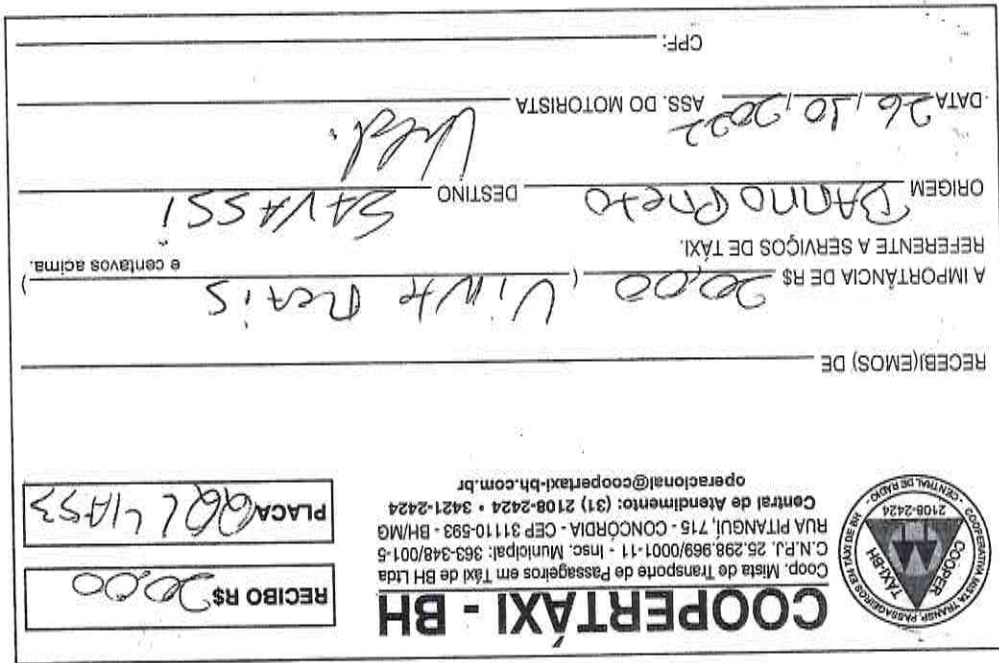 COOPERATIVA MISTA TRANSP. PASSAGEIROS EM TÁXI DE BH
COOPER
TÁXI-BH
2108-2424
- CENTRAL DE RÁDIO -
COOPERTÁXI - BH
Coop. Mista de Transporte de Passageiros em Táxi de BH Ltda
C.N.P.J. 25.298.969/0001-11 - Insc. Municipal: 363-348/001-5
RUA PITANGUÍ, 715 - CONCÓRDIA - CEP 31110-593 - BH/MG
Central de Atendimento: (31) 2108-2424 • 3421-2424
operacional@coopertaxi-bh.com.br
RECIBO R$ 20,00
PLACA
RECEBI(EMOS) DE
A IMPORTÂNCIA DE R$ 20,00 ( Vinte Reais e centavos acima. )
REFERENTE A SERVIÇOS DE TÁXI.
ORIGEM Barro Preto DESTINO SAVASSI
DATA 26, 10, 2022 ASS. DO MOTORISTA
CPF: